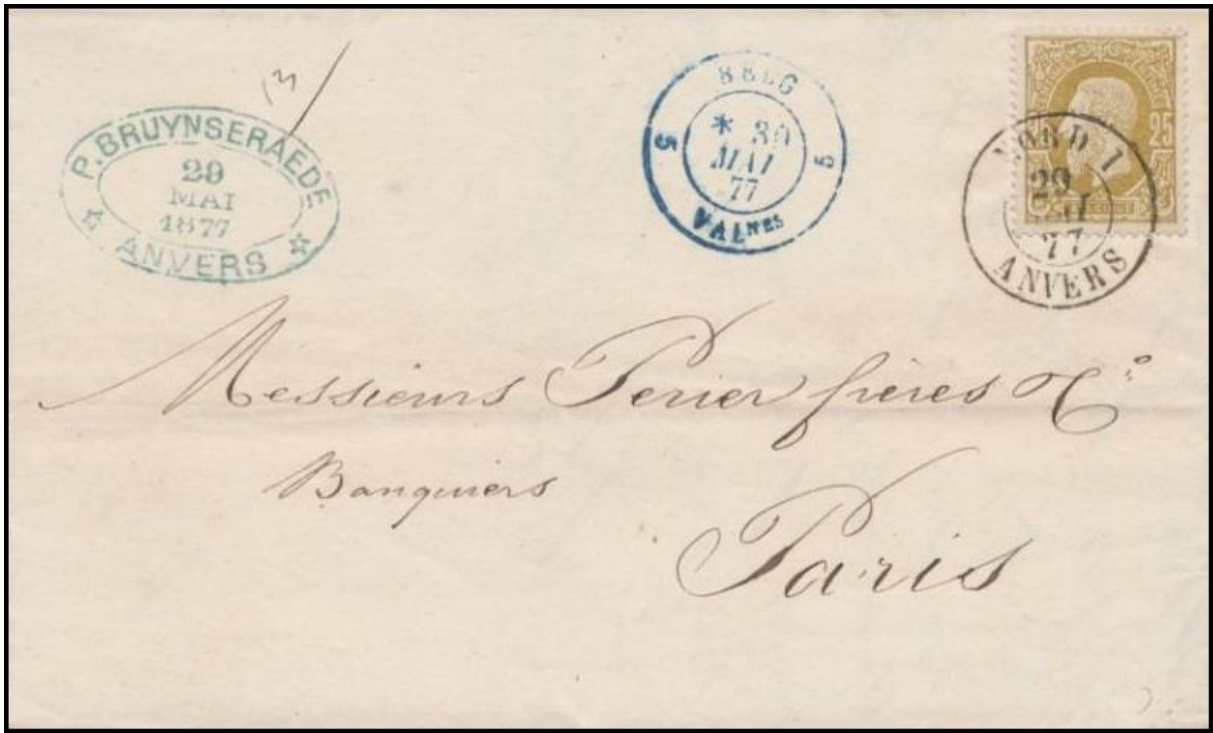 13
P. BRUYNSERAEDE
29
MAI
1877
ANVERS
BELG
5 5
* 30
MAI
77
VALNES
25
NORD 1
29
MAI
77
ANVERS
Messieurs Perier frères & Co
Banquiers
Paris